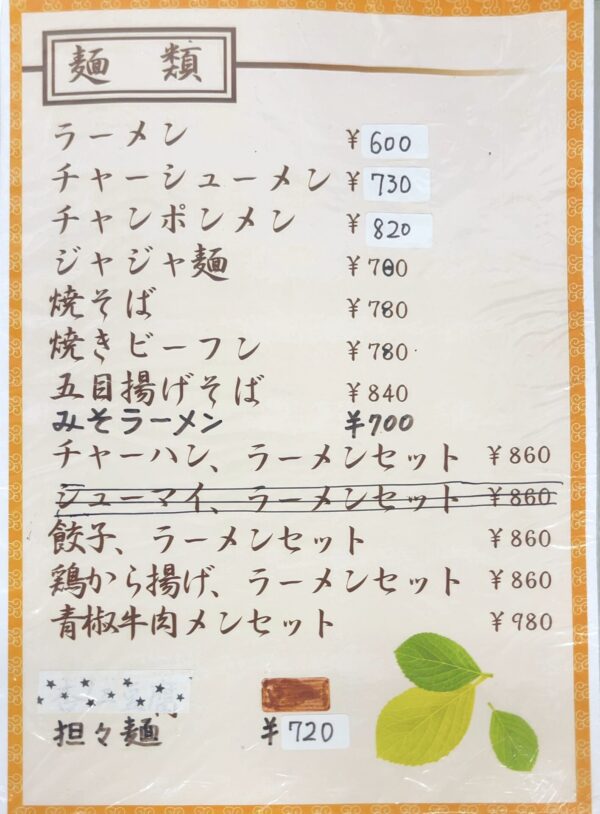 麺 類
ラーメン ¥600
チャーシューメン ¥730
チャンポンメン ¥820
ジャジャ麺 ¥700
焼そば ¥780
焼きビーフン ¥780
五目揚げそば ¥840
みそラーメン ¥700
チャーハン、ラーメンセット ¥860
シューマイ、ラーメンセット ¥860
餃子、ラーメンセット ¥860
鶏から揚げ、ラーメンセット ¥860
青椒牛肉メンセット ¥980
担々麺 ¥720